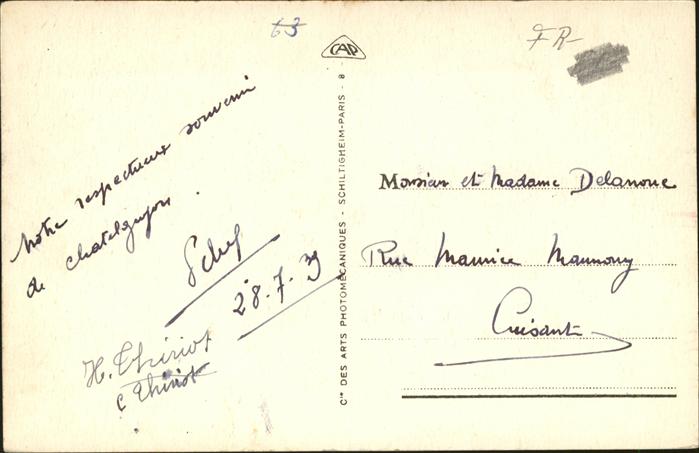 63
FR-
CAP
Notre respectueux souvenir
de Chatelguyon.
28.7.39
H. Thiriot
C Thiriot
Cie DES ARTS PHOTOMÉCANIQUES - SCHILTIGHEIM-PARIS - 8 -
Monsieur et Madame Delanoue
Rue Maurice Maunoury
Luisant